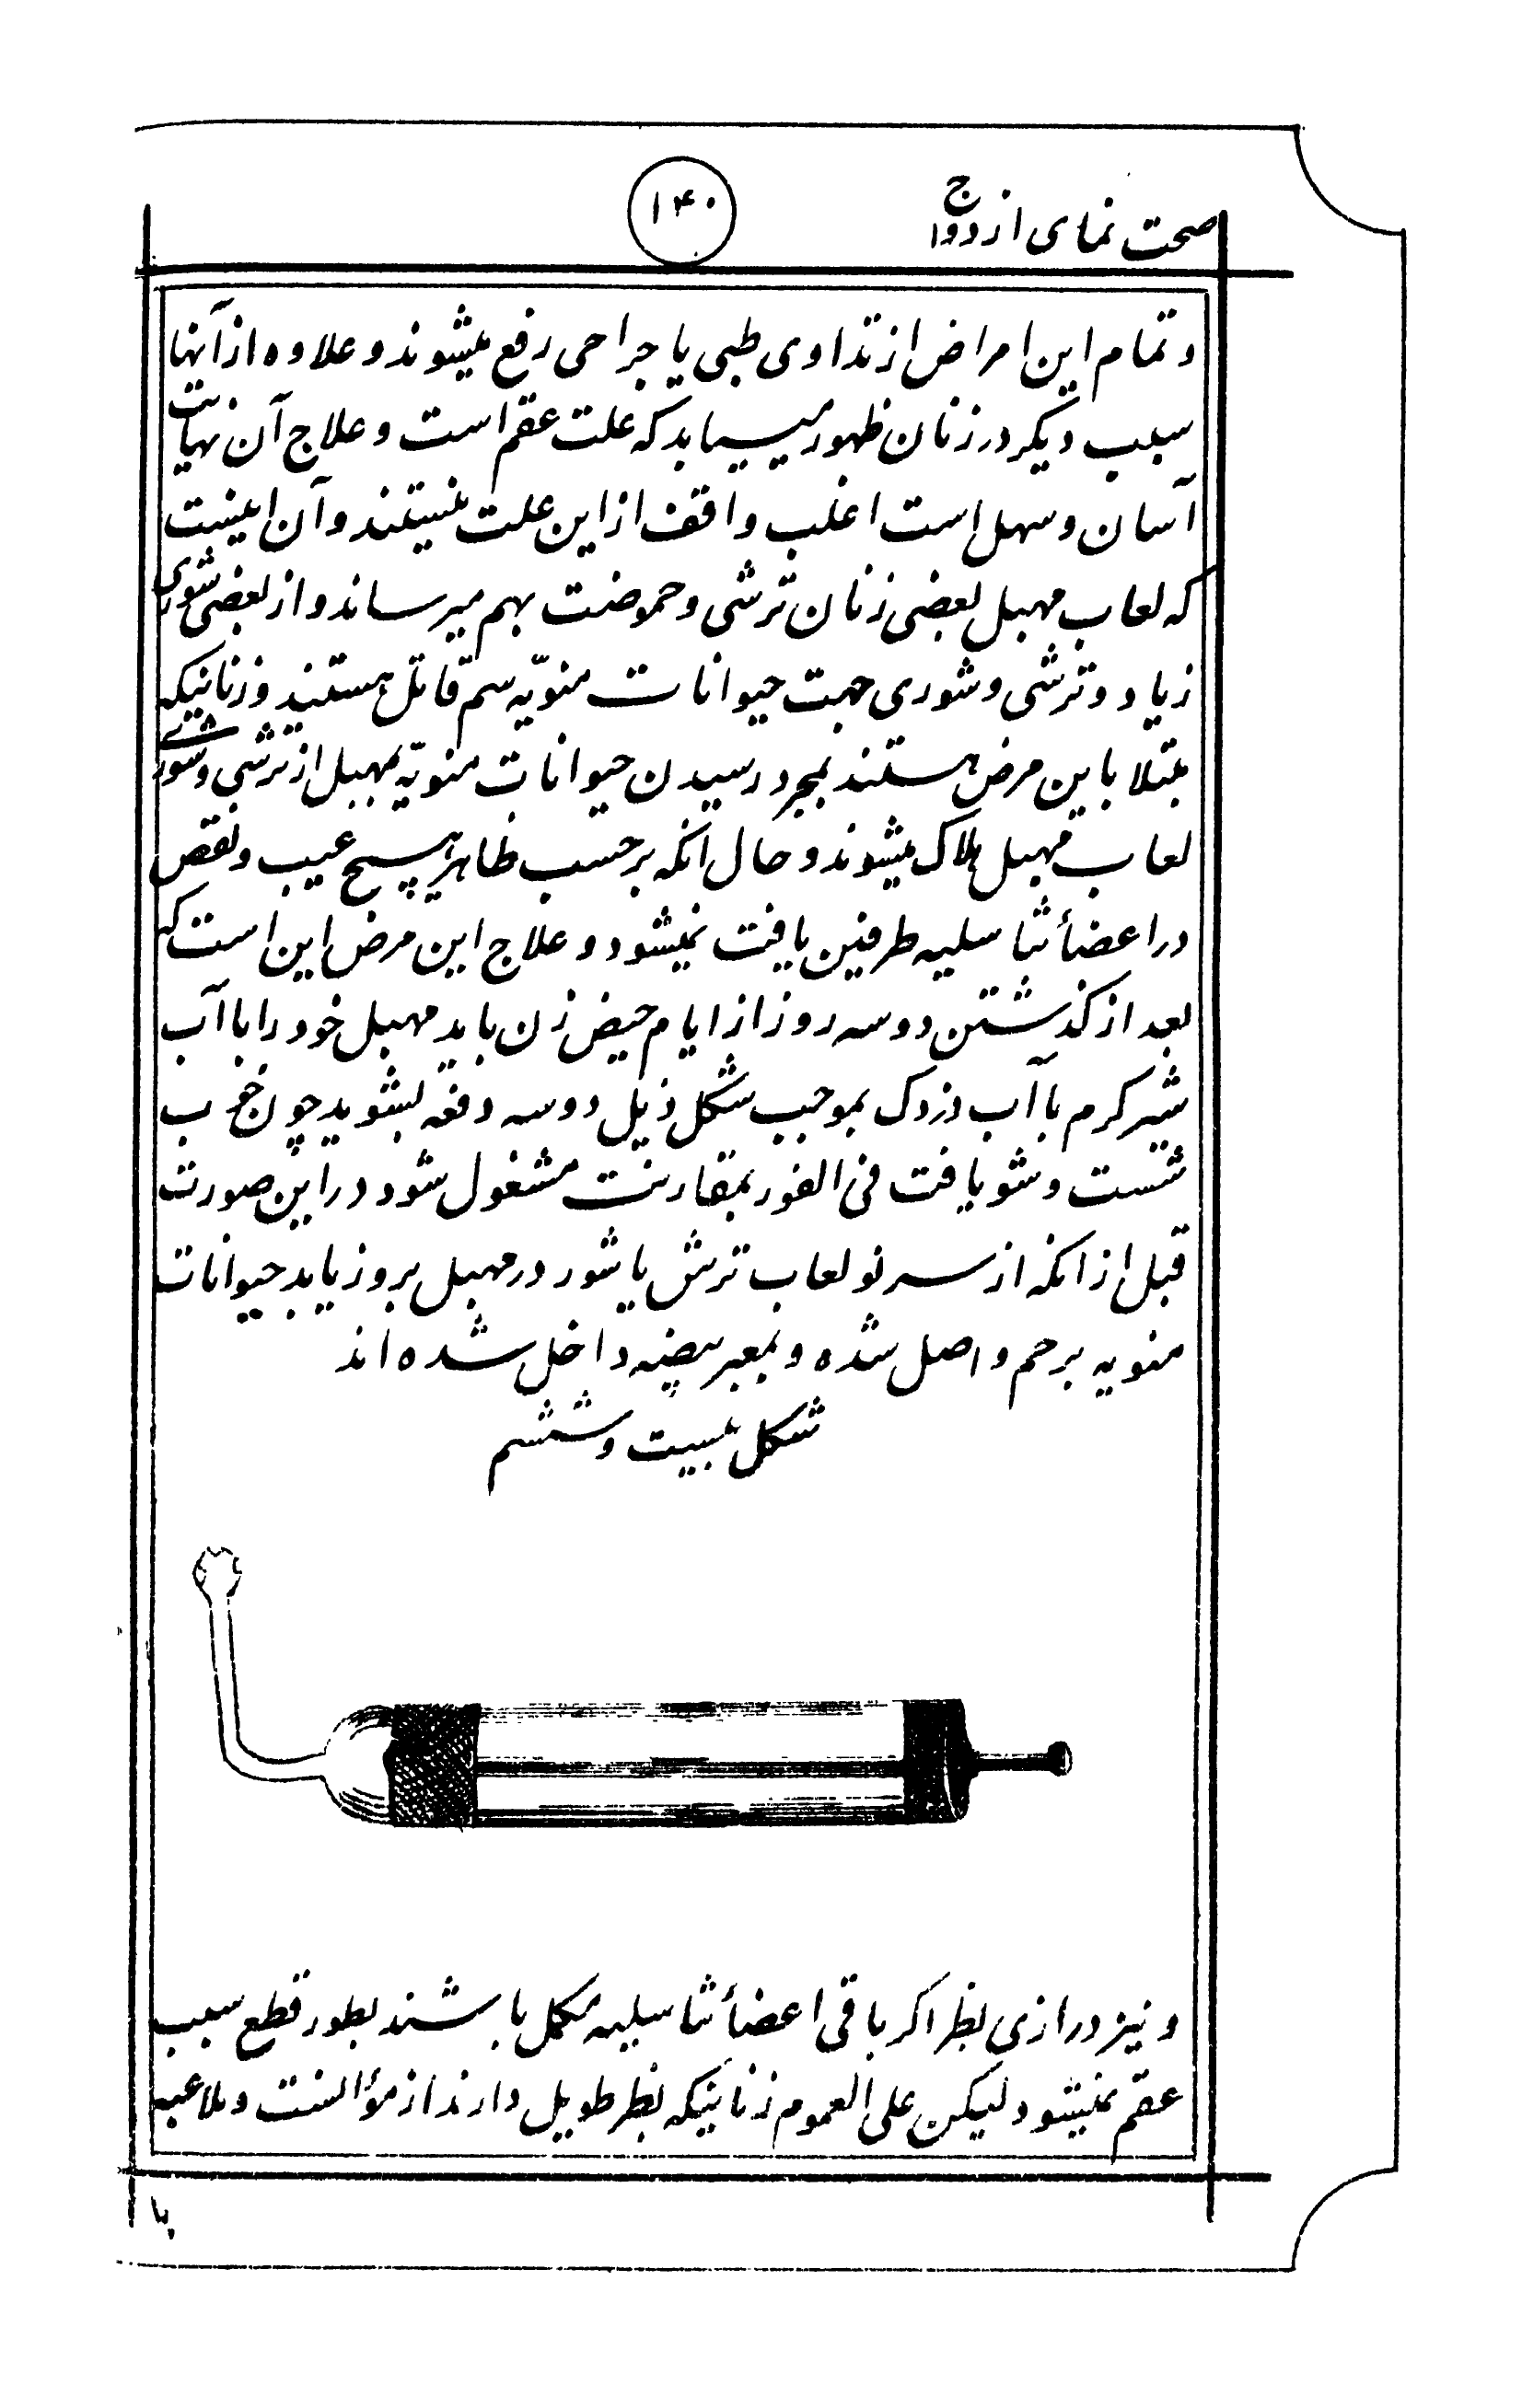 صحت نمای ازدواج
۱۴۰
و تمام این امراض از تداوی طبی یا جراحی رفع میشوند و علاوه از آنها
سبب دیکر در زنان ظهور میـیابد که علت عقم است و علاج آن نهایت
آسان و سهل است اغلب واقف از این علت نیستند و آن اینست
که لعاب مهبل بعضی زنان ترشی و حموضت بهم میرساند و از بعضی شوری
زیاد و ترشی و شوری جهت حیوانات منویّه سم قاتل هستند و زنانیکه
مبتلا باین مرض هستند بمجرد رسیدن حیوانات منویّه بمهبل از ترشی و شوری
لعاب مهبل هلاک میشوند و حال انکه بر حسب ظاهر هیچ عیب و نقص
در اعضأ تناسلیه طرفین یافت نمیشود و علاج این مرض این است که
بعد از کذشتن دو سه روز از ایام حیض زن باید مهبل خود را با آب
شیر کرم با آب دزدک بموجب شکل ذیل دو سه دفعه بشوید چون خوب
شست و شو یافت فی الفور بمقاربت مشغول شود در این صورت
قبل از انکه از سر نو لعاب ترش یا شور در مهبل بروز یابد حیوانات
منویه برحم واصل شده و بمعبر بیضه داخل شده اند
شکل بیست و ششم
و نیز درازی بظر اکر باقی اعضأ تناسلیه مکمل باشند بطور قطع سبب
عقم نمیشود لیکن علی العموم زنانیکه بظر طویل دارند از مؤانست و ملاعبه